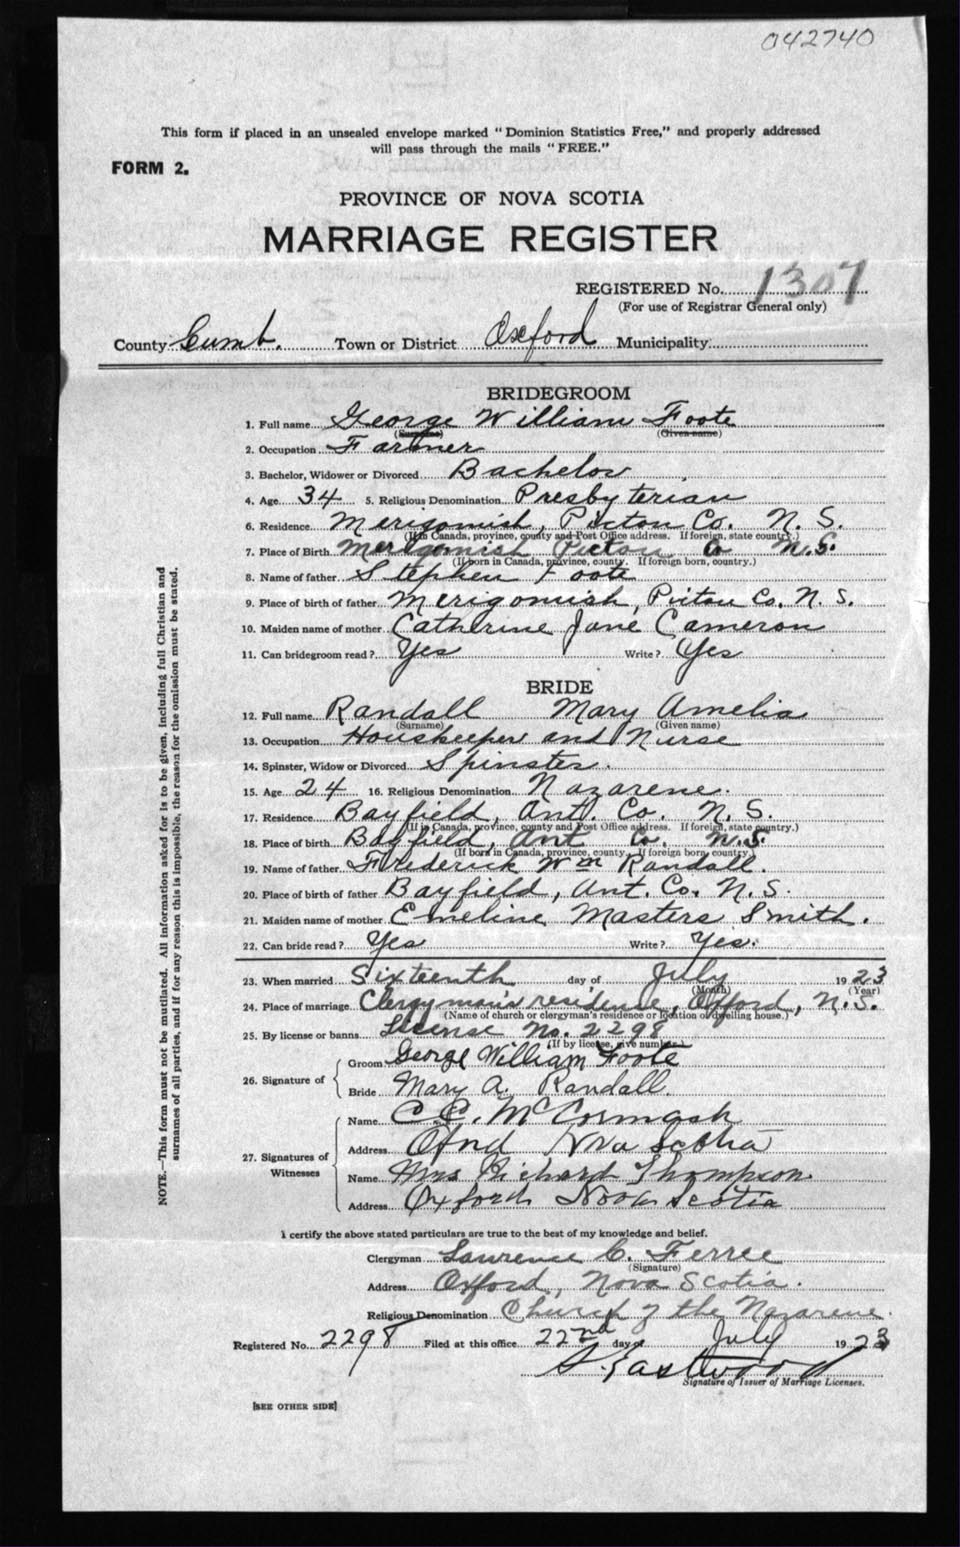 042740
This form if placed in an unsealed envelope marked "Dominion Statistics Free," and properly addressed
will pass through the mails "FREE."
FORM 2.
PROVINCE OF NOVA SCOTIA
MARRIAGE REGISTER
REGISTERED No. 1307
(For use of Registrar General only)
County Cumb. Town or District Oxford Municipality
BRIDEGROOM
1. Full name George William Foote
(Surname) (Given name)
2. Occupation Farmer
3. Bachelor, Widower or Divorced Bachelor
4. Age 34 5. Religious Denomination Presbyterian
6. Residence Merigomish, Pictou Co. N. S.
(If in Canada, province, county and Post Office address. If foreign, state country.)
7. Place of Birth Merigomish Pictou Co N.S.
(If born in Canada, province, county. If foreign born, country.)
8. Name of father Stephen Foote
9. Place of birth of father Merigomish, Pictou Co. N. S.
10. Maiden name of mother Catherine Jane Cameron
11. Can bridegroom read? Yes Write? Yes
BRIDE
12. Full name Randall Mary Amelia
(Surname) (Given name)
13. Occupation Houskeeper and Nurse
14. Spinster, Widow or Divorced Spinster.
15. Age 24 16. Religious Denomination Nazarene.
17. Residence Bayfield, Ant. Co. N. S.
(If in Canada, province, county and Post Office address. If foreign, state country.)
18. Place of birth Bayfield, Ant Co. N.S.
(If born in Canada, province, county. If foreign born, country.)
19. Name of father Frederick Wm Randall.
20. Place of birth of father Bayfield, Ant. Co. N. S.
21. Maiden name of mother Emeline Masters Smith.
22. Can bride read? Yes Write? Yes.
23. When married Sixteenth day of July 1923
(Month) (Year)
24. Place of marriage Clergyman's residence, Oxford, N.S.
(Name of church or clergyman's residence or location of dwelling house.)
25. By license or banns License No. 2298
(If by license, give number.)
26. Signature of
Groom George William Foote
Bride Mary A. Randall.
27. Signatures of Witnesses
Name C. E. McCormack
Address Oxfrd Nova Scotia
Name Mrs Richard Thompson.
Address Oxford Nova Scotia
I certify the above stated particulars are true to the best of my knowledge and belief.
Clergyman Lawrence C. Ferree
(Signature)
Address Oxford, Nova Scotia.
Religious Denomination Church of the Nazarene.
Registered No. 2298 Filed at this office 22nd day of July 1923
Eastwood
Signature of Issuer of Marriage Licenses.
[SEE OTHER SIDE]
NOTE.—This form must not be mutilated. All information asked for is to be given, including full Christian and
surnames of all parties, and if for any reason this is impossible, the reason for the omission must be stated.